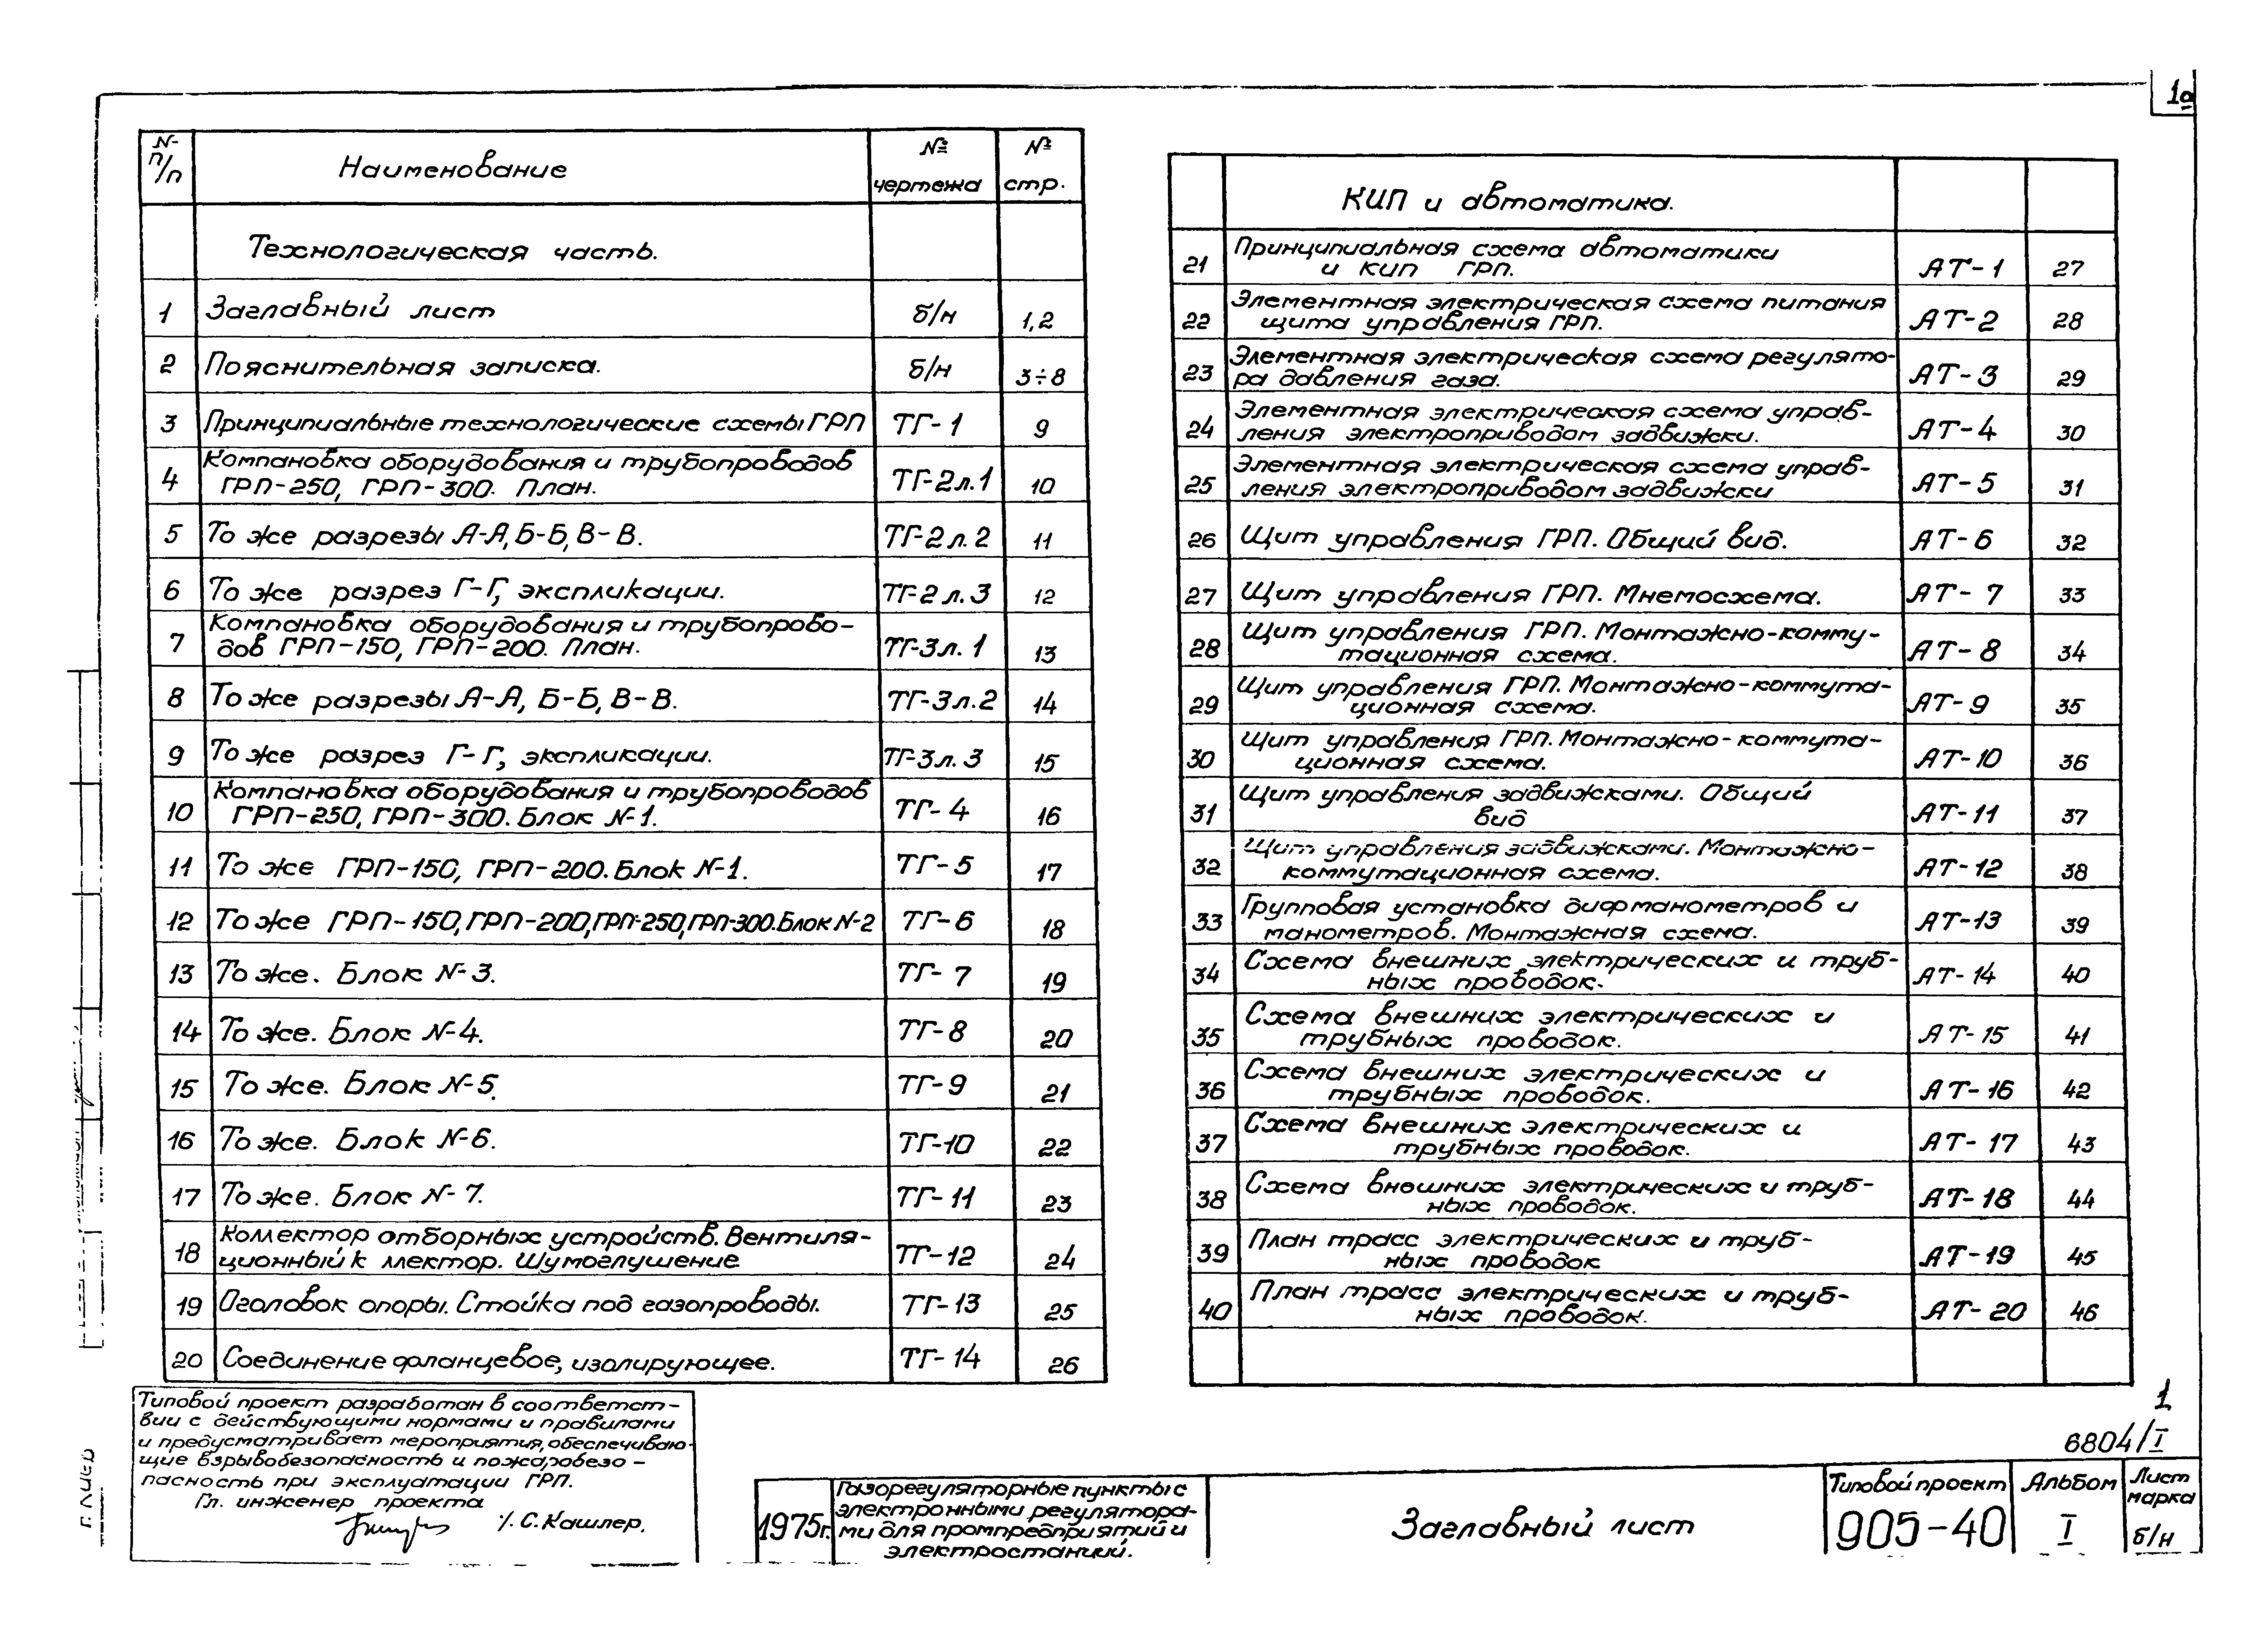 1а
№ п/п Наименование № чертежа № стр.
Технологическая часть.
1 Заглавный лист б/н 1,2
2 Пояснительная записка. б/н 3÷8
3 Принципиальные технологические схемы ГРП ТГ-1 9
4 Компановка оборудования и трубопроводов
ГРП-250, ГРП-300. План. ТГ-2л.1 10
5 То же разрезы А-А, Б-Б, В-В. ТГ-2 л. 2 11
6 То же разрез Г-Г, экспликации. ТГ-2 л. 3 12
7 Компановка оборудования и трубопрово-
дов ГРП-150, ГРП-200. План. ТГ-3л. 1 13
8 То же разрезы А-А, Б-Б, В-В. ТГ-3л.2 14
9 То же разрез Г-Г, экспликации. ТГ-3л. 3 15
10 Компановка оборудования и трубопроводов
ГРП-250, ГРП-300. Блок №1. ТГ-4 16
11 То же ГРП-150, ГРП-200. Блок №1. ТГ-5 17
12 То же ГРП-150, ГРП-200, ГРП-250, ГРП-300. Блок №2 ТГ-6 18
13 То же. Блок №3. ТГ-7 19
14 То же. Блок №4. ТГ-8 20
15 То же. Блок №5. ТГ-9 21
16 То же. Блок №6. ТГ-10 22
17 То же. Блок №7. ТГ-11 23
18 Коллектор отборных устройств. Вентиля-
ционный к ллектор. Шумоглушение ТГ-12 24
19 Оголовок опоры. Стойка под газопроводы. ТГ-13 25
20 Соединение фланцевое, изолирующее. ТГ-14 26
КИП и автоматика.
21 Принципиальная схема автоматики
и КИП ГРП. АТ-1 27
22 Элементная электрическая схема питания
щита управления ГРП. АТ-2 28
23 Элементная электрическая схема регулято-
ра давления газа. АТ-3 29
24 Элементная электрическая схема управ-
ления электроприводом задвижки. АТ-4 30
25 Элементная электрическая схема управ-
ления электроприводом задвижки АТ-5 31
26 Щит управления ГРП. Общий вид. АТ-6 32
27 Щит управления ГРП. Мнемосхема. АТ-7 33
28 Щит управления ГРП. Монтажно-комму-
тационная схема. АТ-8 34
29 Щит управления ГРП. Монтажно-коммута-
ционная схема. АТ-9 35
30 Щит управления ГРП. Монтажно-коммута-
ционная схема. АТ-10 36
31 Щит управления задвижками. Общий
вид АТ-11 37
32 Щит управления задвижками. Монтажно-
коммутационная схема. АТ-12 38
33 Групповая установка дифманометров и
манометров. Монтажная схема. АТ-13 39
34 Схема внешних электрических и труб-
ных проводок. АТ-14 40
35 Схема внешних электрических и
трубных проводок. АТ-15 41
36 Схема внешних электрических и
трубных проводок. АТ-16 42
37 Схема внешних электрических и
трубных проводок. АТ-17 43
38 Схема внешних электрических и труб-
ных проводок. АТ-18 44
39 План трасс электрических и труб-
ных проводок АТ-19 45
40 План трасс электрических и труб-
ных проводок. АТ-20 46
Типовой проект разработан в соответст-
вии с действующими нормами и правилами
и предусматривает мероприятия, обеспечиваю-
щие взрывобезопасность и пожаробезо-
пасность при эксплуатации ГРП.
Гл. инженер проекта
С. Кашлер.
г. Киев
1
6804/I
1975г.
Газорегуляторные пункты с
электронными регулятора-
ми для промпредприятий и
электростанций.
Заглавный лист
Типовой проект
905-40
Альбом
I
Лист
марка
б/н